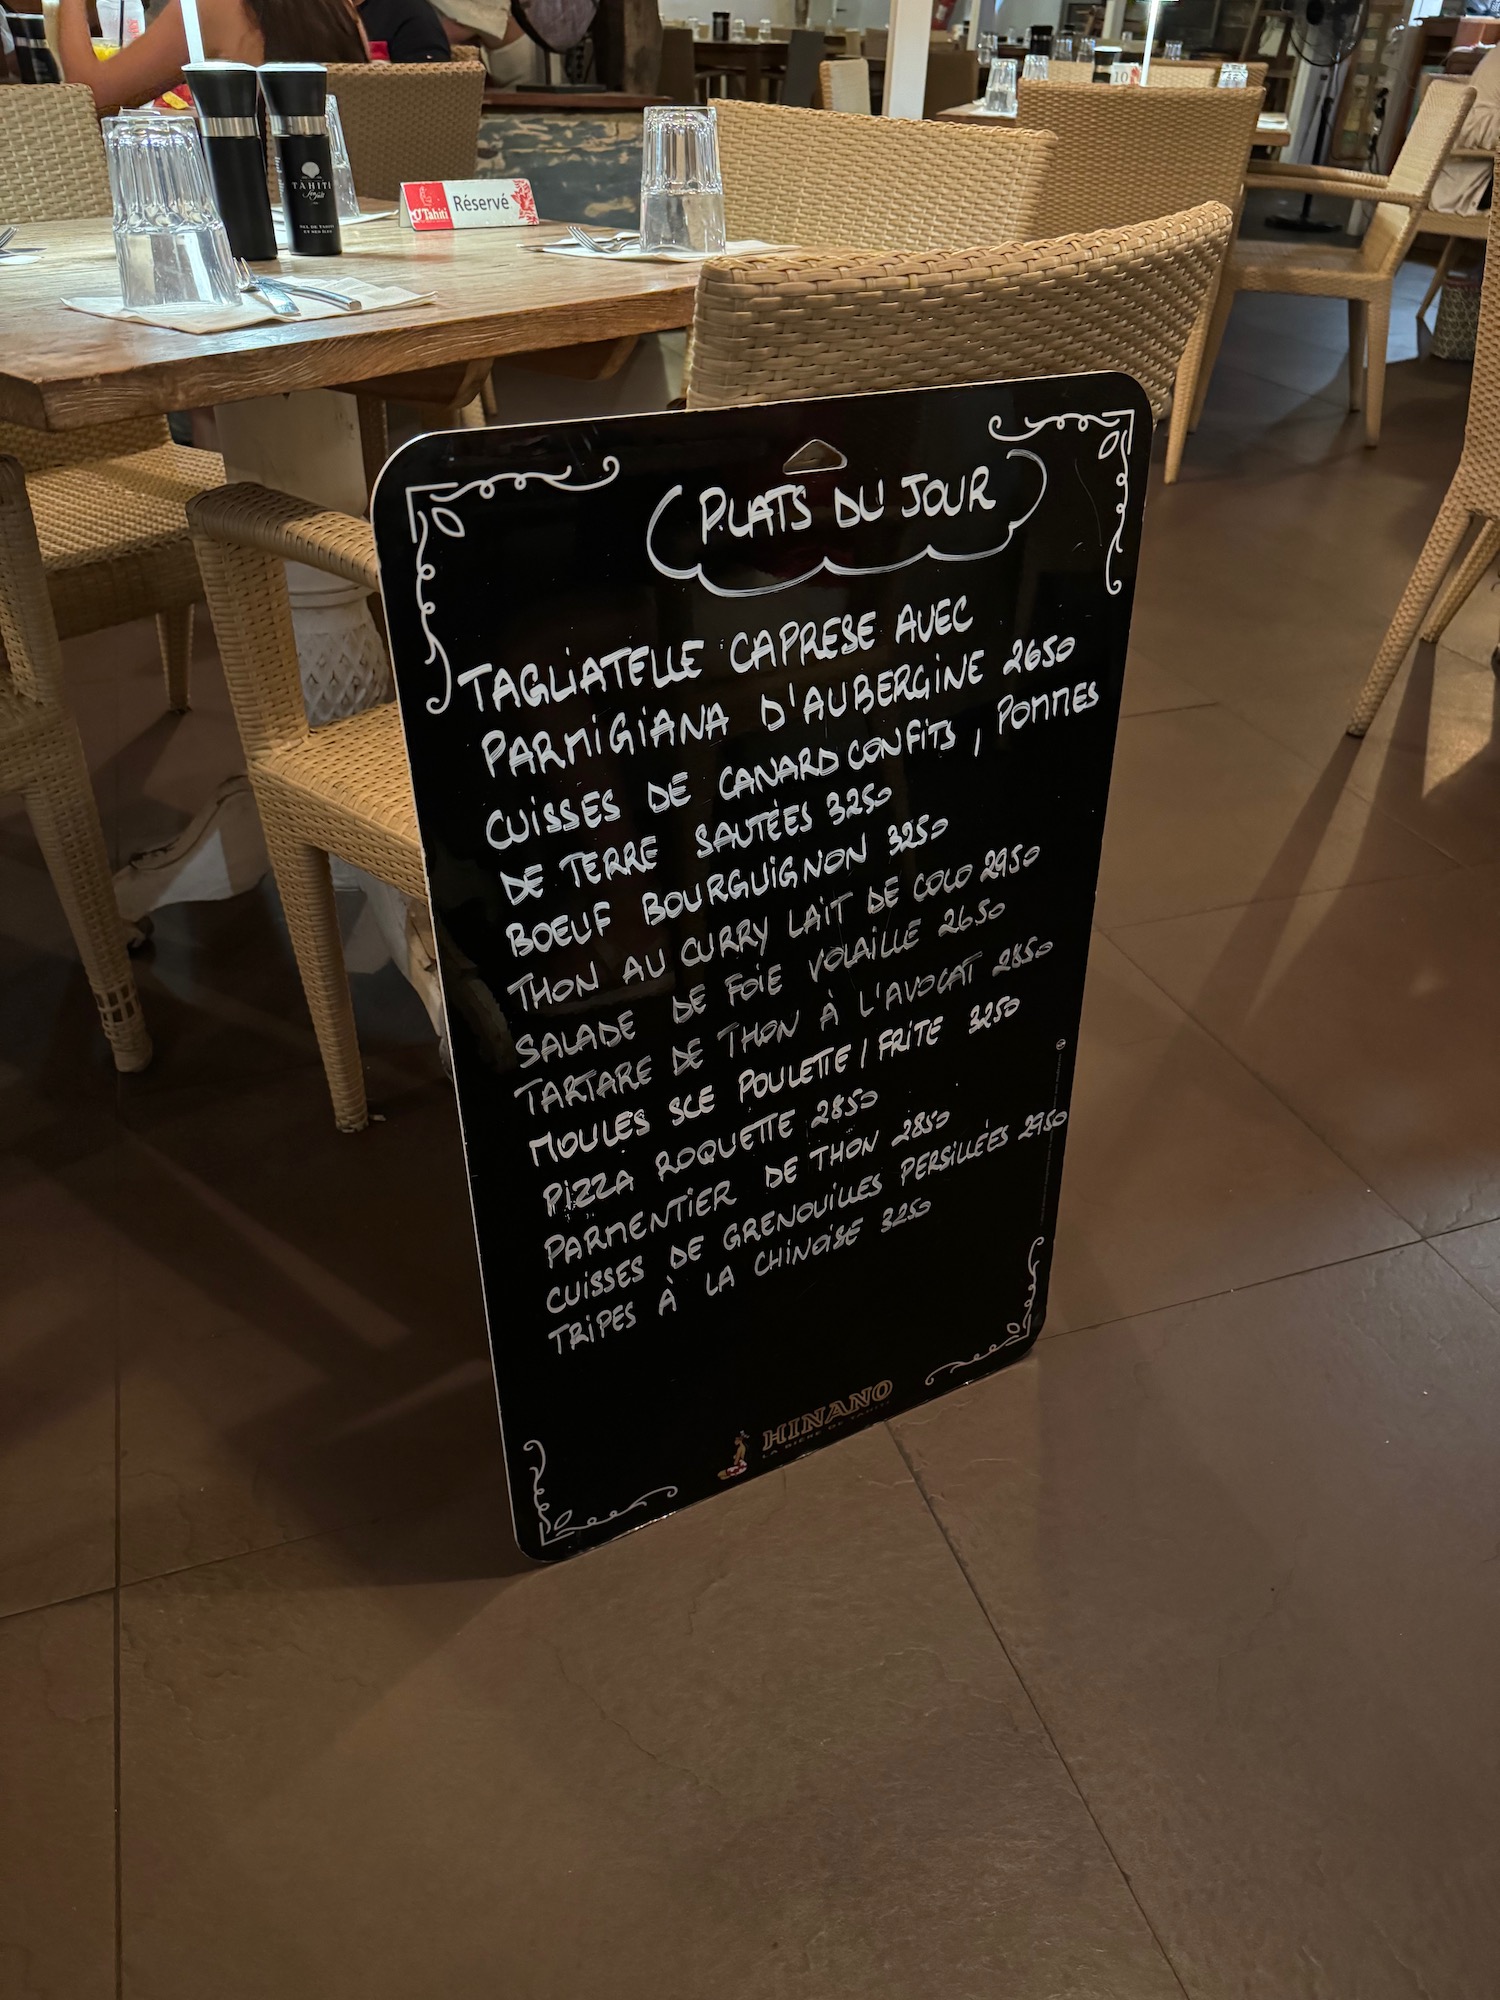 TAHITI
O'Tahiti
Réservé
10
PLATS DU JOUR
TAGLIATELLE CAPRESE AVEC
PARMIGIANA D'AUBERGINE 2650
CUISSES DE CANARD CONFITS, POMMES
DE TERRE SAUTÉES 3250
BOEUF BOURGUIGNON 3250
THON AU CURRY LAIT DE COCO 2950
SALADE DE FOIE VOLAILLE 2650
TARTARE DE THON À L'AVOCAT 2850
MOULES SCE POULETTE / FRITE 3250
PIZZA ROQUETTE 2850
PARMENTIER DE THON 2850
CUISSES DE GRENOUILLES PERSILLÉES 2950
TRIPES À LA CHINOISE 3250
HINANO
LA BIÈRE DE TAHITI